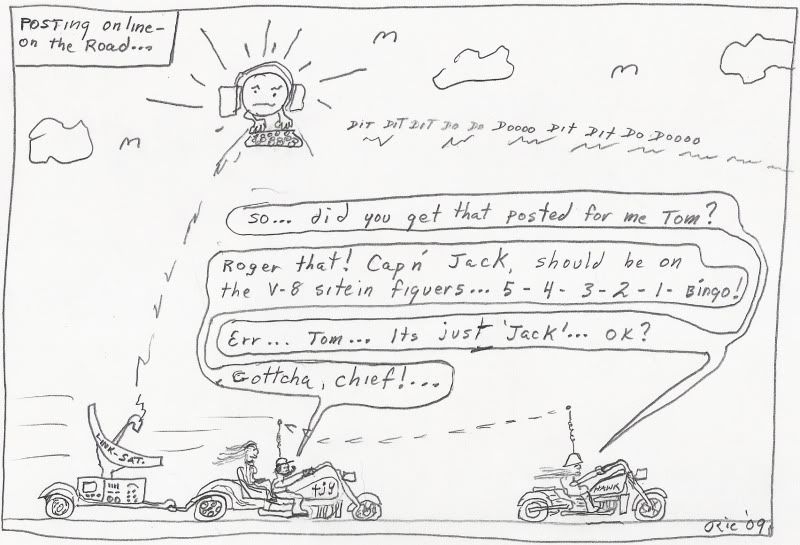 POSTING online-
on the Road...
DIT DIT DIT DO DO DOOOO DIT DIT DO DOOOO
So... did you get that posted for me Tom?
Roger that! Capn' Jack, should be on
the V-8 sitein figuers... 5-4-3-2-1- Bingo!
Err... Tom... Its just 'Jack'... OK?
Gottcha, chief!...
LINK-SAT.
tjy
HAWK
Oric '09